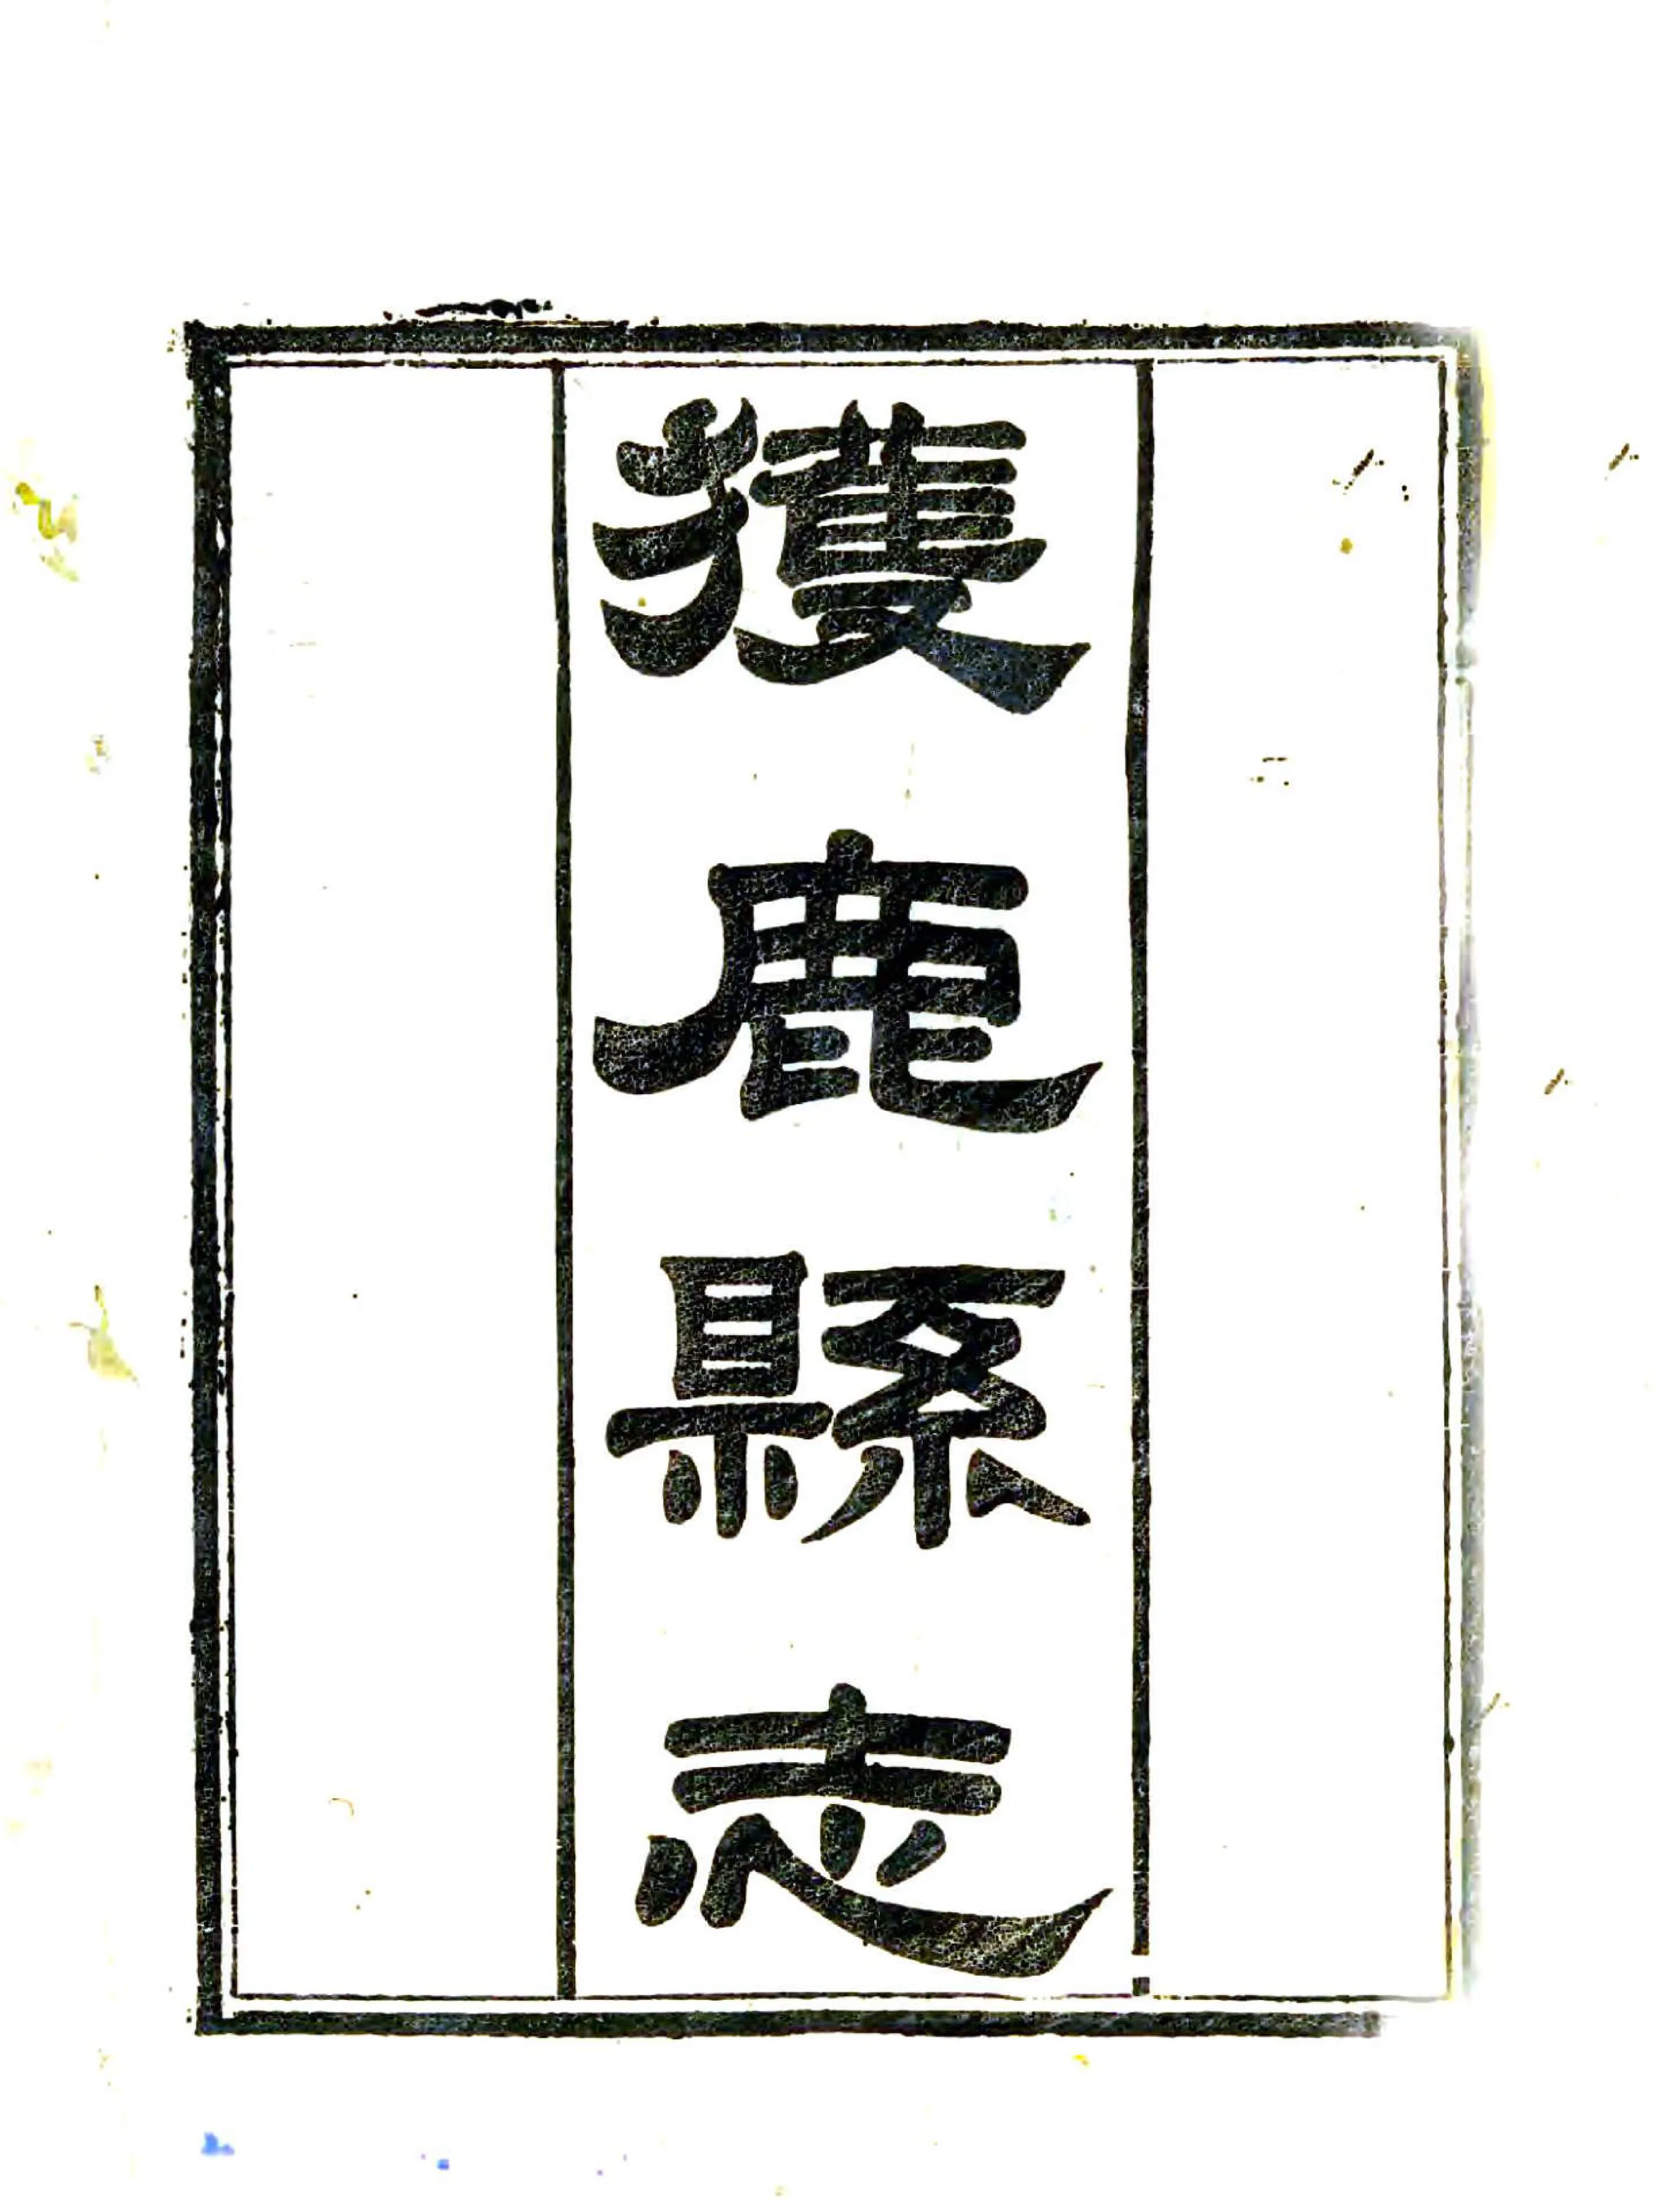 獲鹿縣志